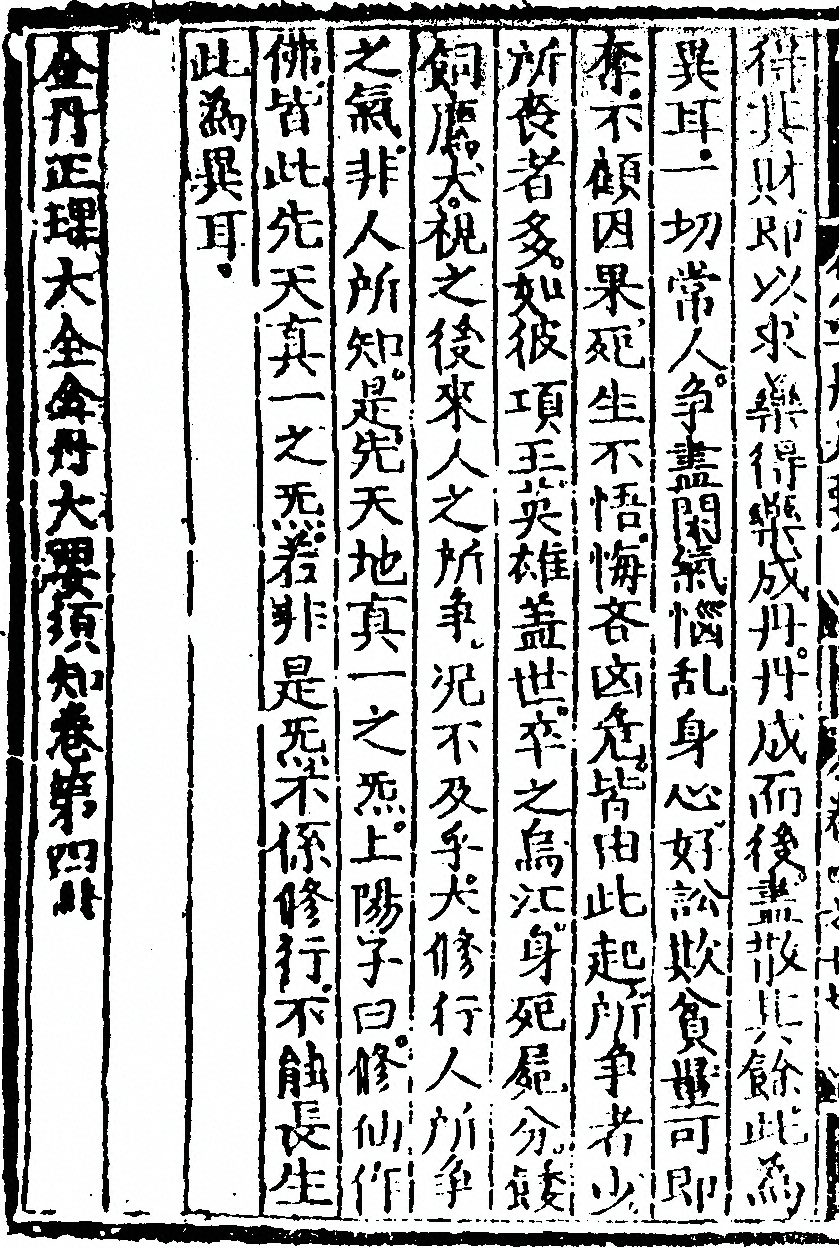 得其財即以求藥得藥成丹。丹成而後盡散其餘此為
異耳。一切常人。爭盡閑氣惱乱身心好訟欺貧無可即
奪。不顧因果死生不悟悔吝凶危皆由此起所爭者少
所丧者多。如彼項王英雄盖世。卒之烏江身死屍分。餧
飼鷹犬。視之後來人之所爭。况不及乎犬。修行人所爭
之氣。非人所知。是先天地真一之炁。上陽子曰。修仙作
佛皆此先天真一之炁。若非是炁不係修行。不能長生
此為異耳。
金丹正理大全金丹大要須知卷第四